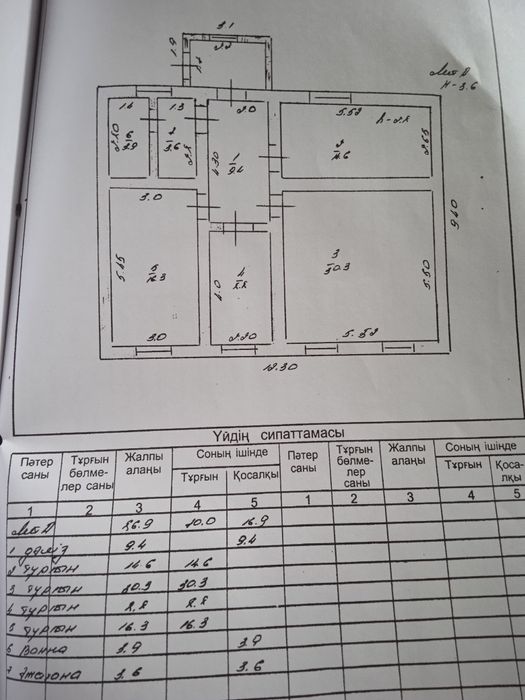 2.1
2.2
1.9
Лит А
H - 3.6
1.4
1.3
2.0
5.52
h - 2.8
2.65
6
3.9
7
3.6
4.30
1
9.4
2
14.6
3.0
9.40
5.45
5
16.3
4.0
4
8.8
3
30.3
5.50
3.0
2.20
5.52
12.30
Үйдің сипаттамасы
Пәтер саны Тұрғын бөлме-лер саны Жалпы алаңы Соның ішінде Пәтер саны Тұрғын бөлме-лер саны Жалпы алаңы Соның ішінде
Тұрғын Қосалқы Тұрғын Қоса-лқы
1 2 3 4 5 1 2 3 4 5
Лит А 86.9 70.0 16.9
1 дәліз 9.4 9.4
2 тұрғын 14.6 14.6
3 тұрғын 30.3 30.3
4 тұрғын 8.8 8.8
5 тұрғын 16.3 16.3
6 Ванна 3.9 3.9
7 3.6 3.6